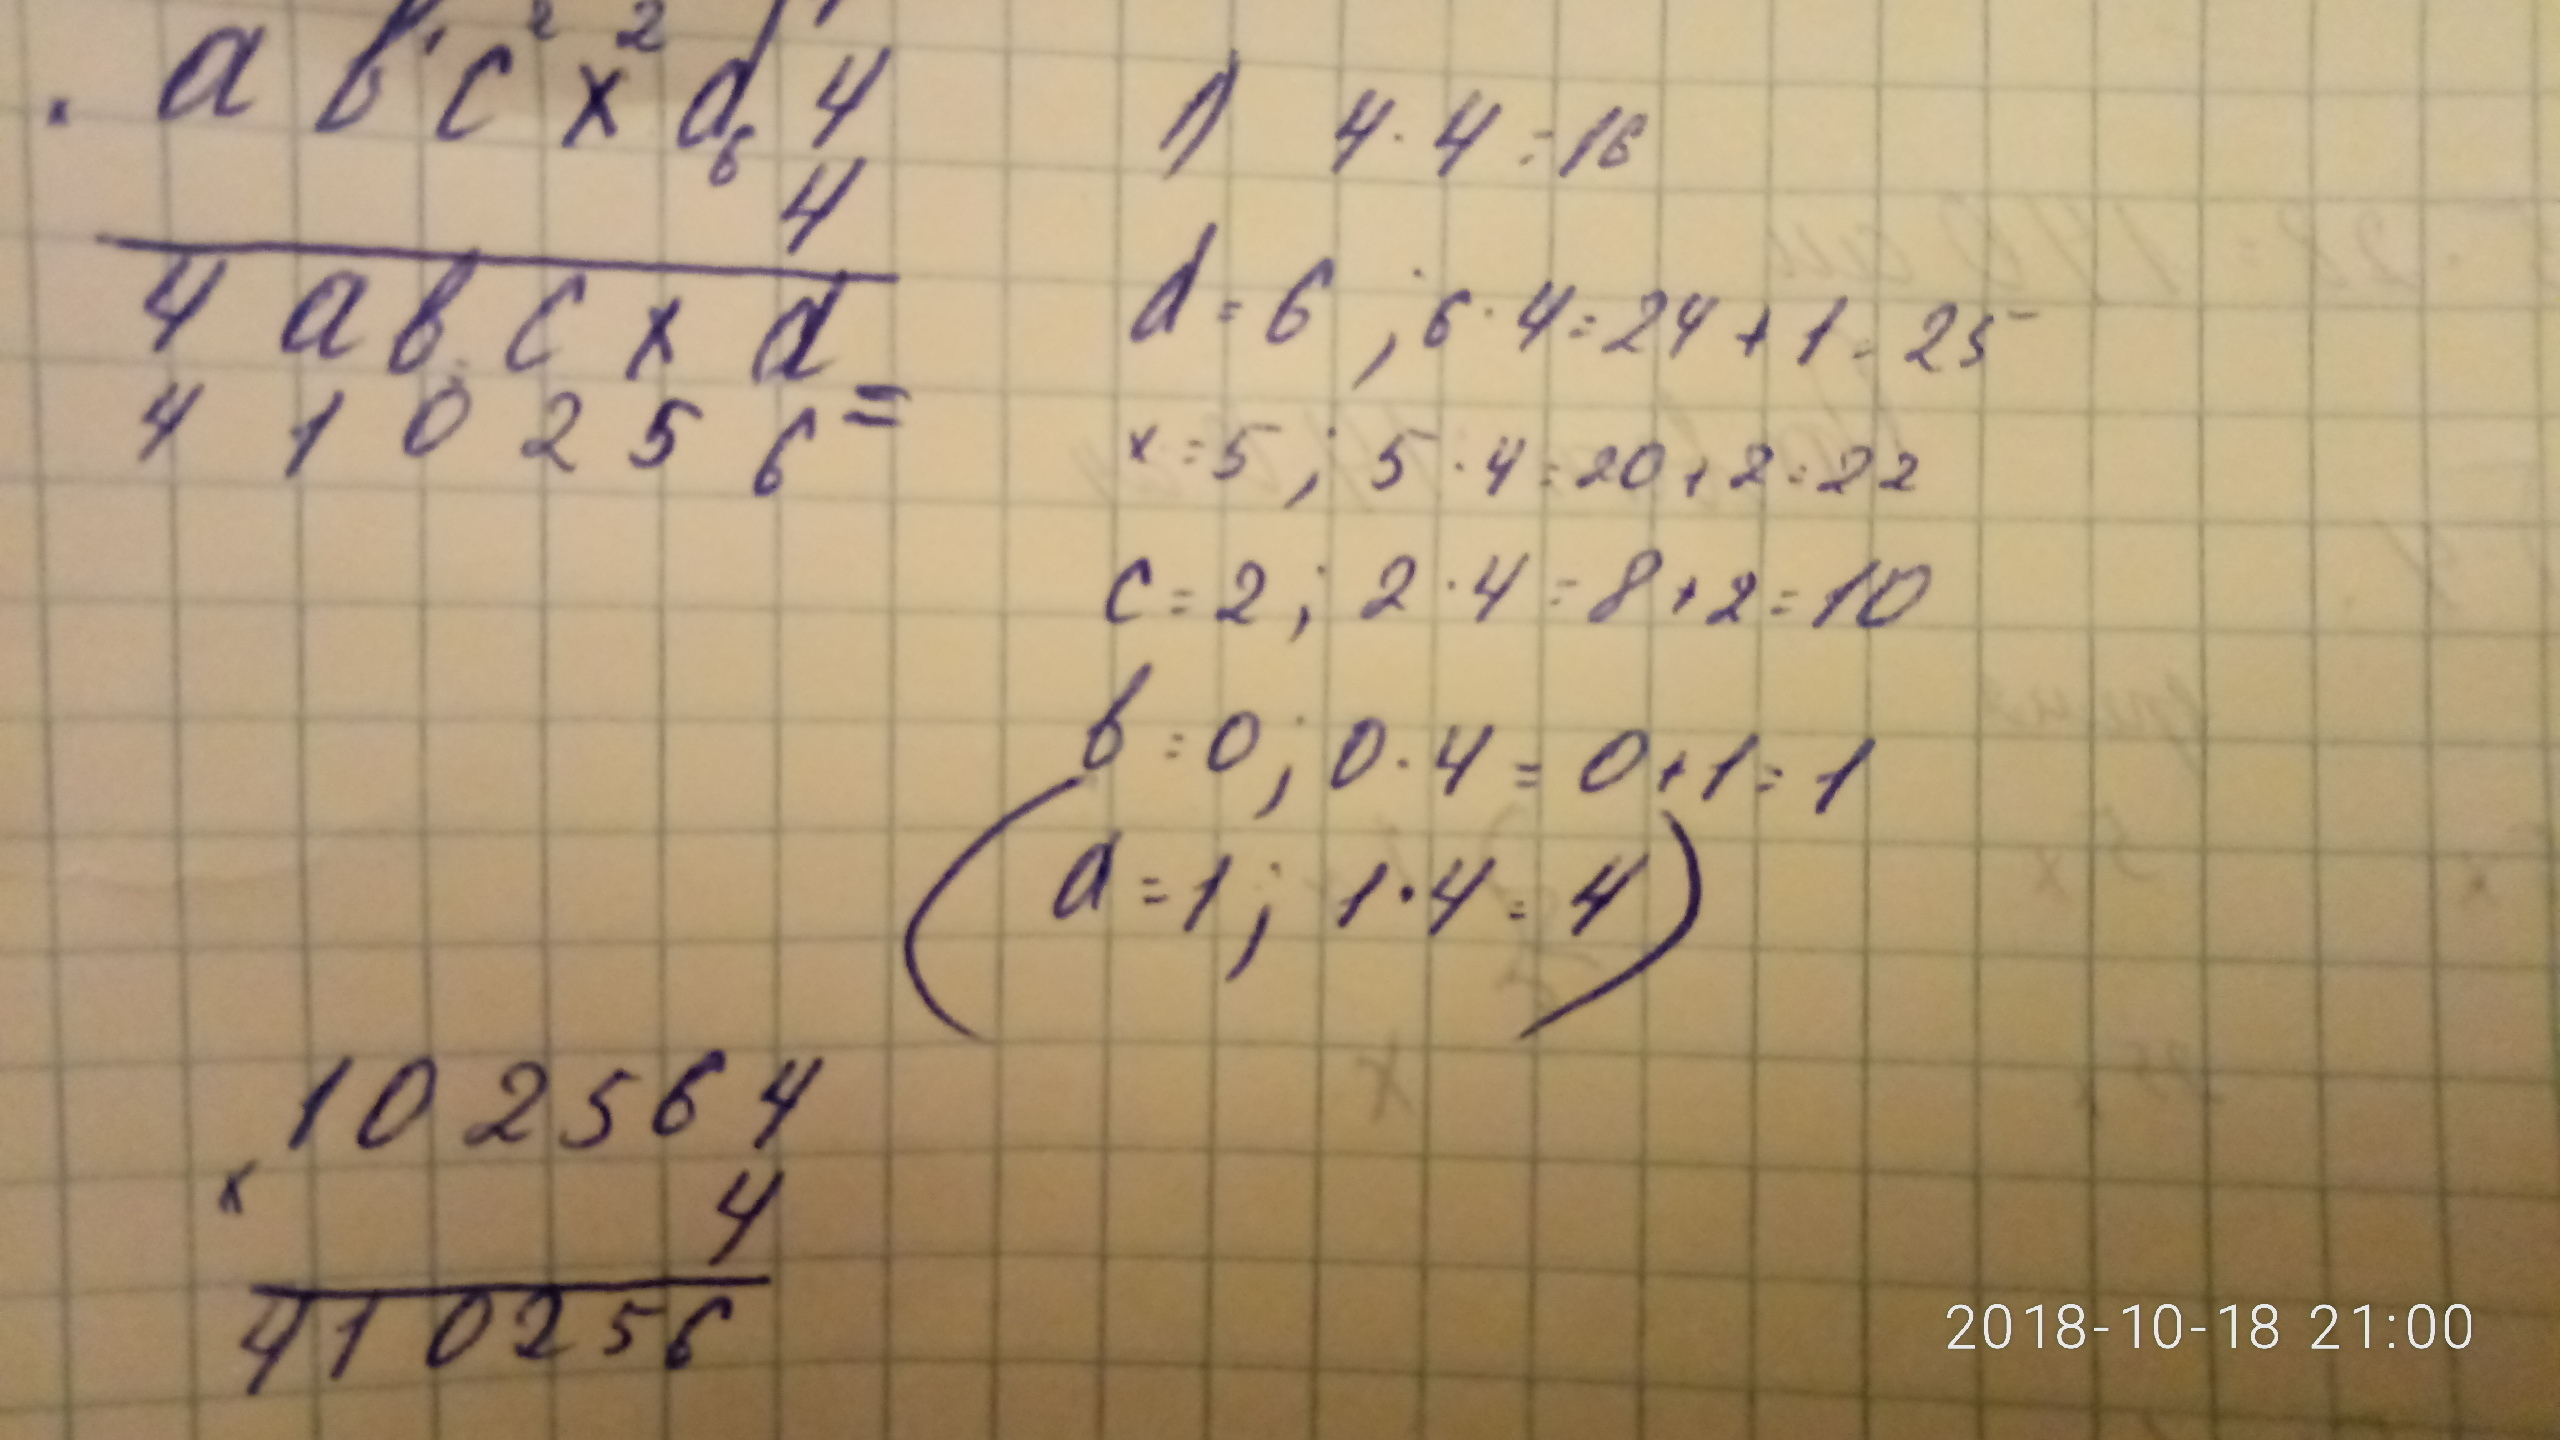 1 2 2 1
. a b c x d 4
6
4
4 a b c x d
4 1 0 2 5 6 =
1) 4 · 4 = 16
d = 6 ; 6 · 4 = 24 + 1 = 25
x = 5 ; 5 · 4 = 20 + 2 = 22
c = 2 ; 2 · 4 = 8 + 2 = 10
b = 0 ; 0 · 4 = 0 + 1 = 1
( a = 1 ; 1 · 4 = 4 )
102564
x
4
410256
2018-10-18 21:00